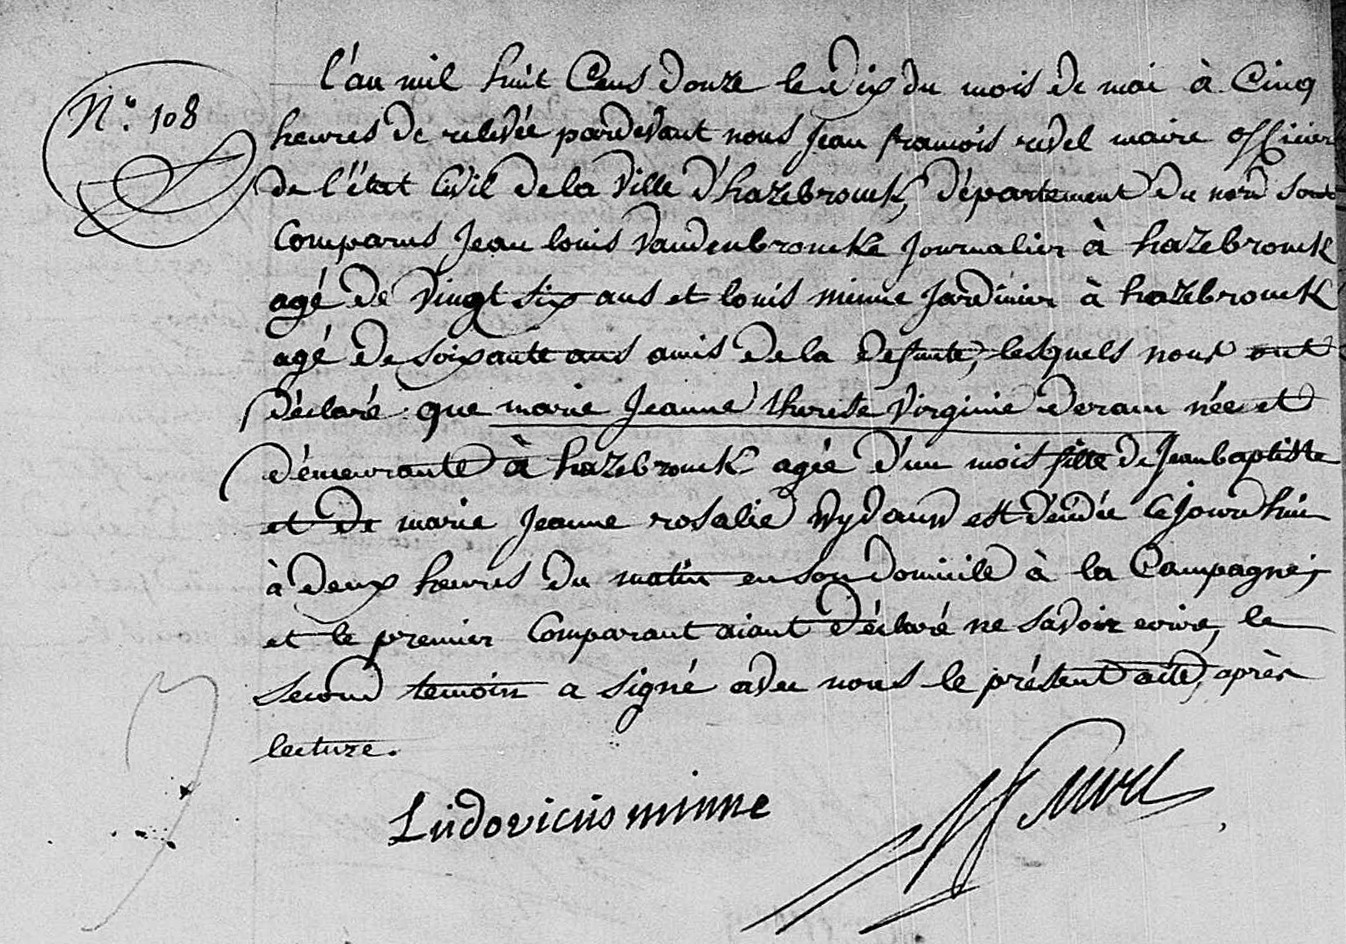 N.º 108
l'an mil huit Cens douze le dix du mois de mai à Cinq
heures de relevée pardevant nous Jean francois revel maire officier
de l'état Civil de la Ville d'hazebrouck, département du nord sont
Comparus Jean louis Vandenbroucke Journalier à hazebrouck
agé de Vingt six ans et louis minne Jardinier à hazebrouck
agé de soixante ans amis de la defunte, lesquels nous ont
déclaré que marie Jeanne therese Virginie deram née et
démeurante à hazebrouck agée d'un mois fille de Jean baptiste
et de marie Jeanne rosalie Wydauw est décédée Cejourd'hui
à deux heures du matin en son domicile à la Campagne;
et le premier Comparant aiant déclaré ne savoir ecrire, le
second temoin a signé avec nous le présent acte, après
lecture.
Ludovicus minne